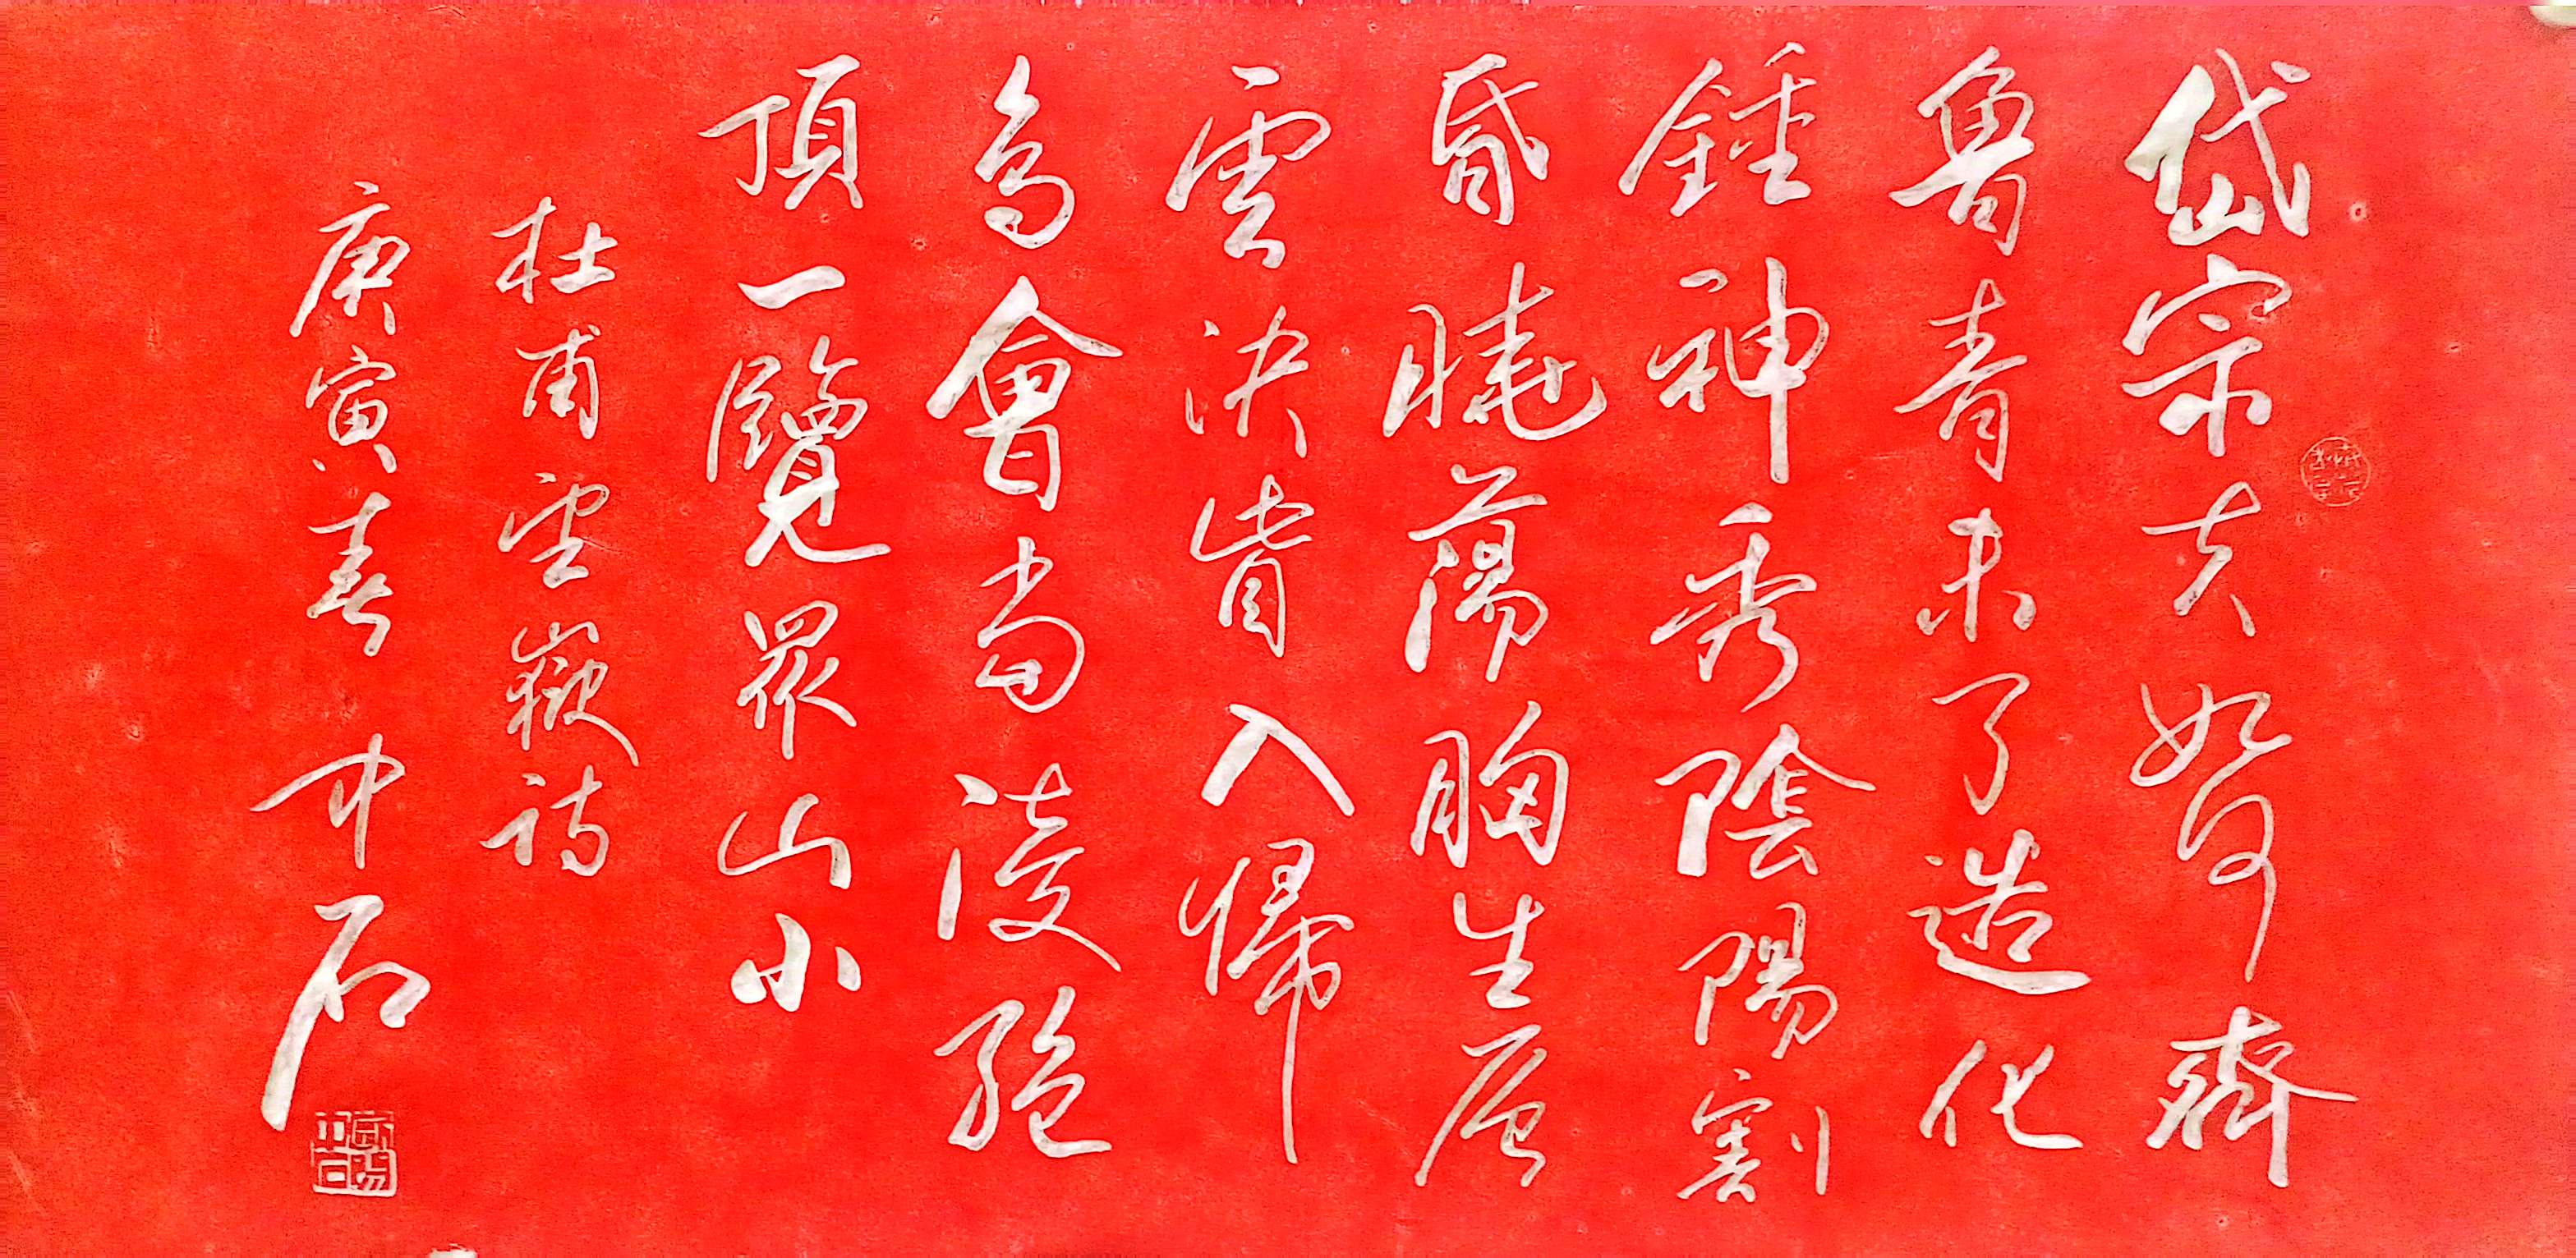 岱宗夫如何齊
魯青未了造化
鍾神秀陰陽割
昏曉蕩胸生層
雲決眥入歸
鳥會當凌絕
頂一覽眾山小
杜甫望嶽詩
庚寅春 中石
歐陽中石